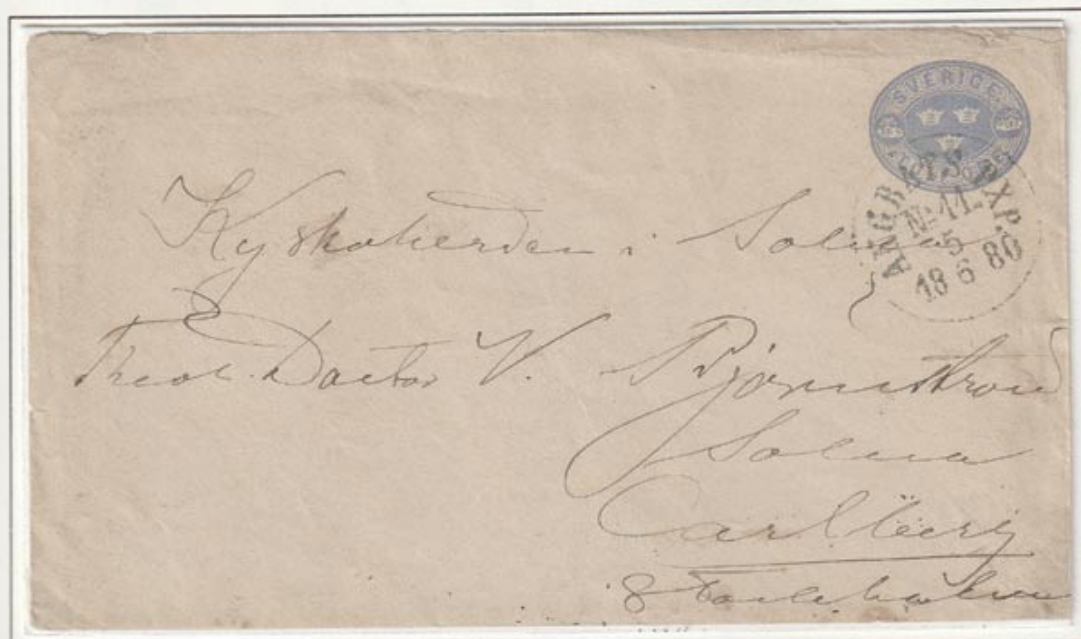 SVERIGE
TOLF ÖRE
ÅNGBÅTS PXP.
№ 11.
5
18 6 80
Kyrkoherden i Solna
Theol. Doctor V. Björnström
Solna
Carlberg
Stockholm